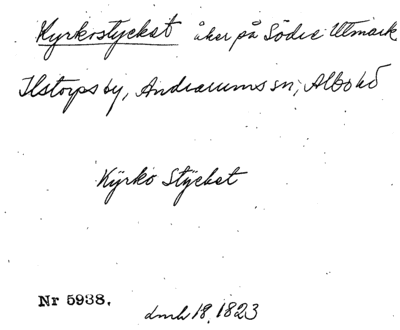 Kyrkostycket åker på Södre Utmark
Ilstorps by, Andrarums sn, Albo hd
Kÿrko Stÿcket
Nr 5938.
dmh 18, 1823